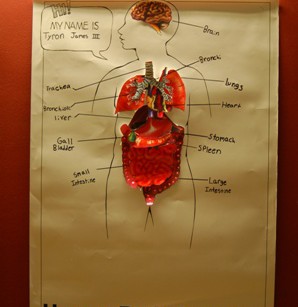 Hi!
MY NAME IS
Tyron James III
Brain
Bronchi
Trachea
lungs
Bronchioli
Heart
liver
Gall
Bladder
Stomach
Spleen
Small
Intestine
Large
Intestine